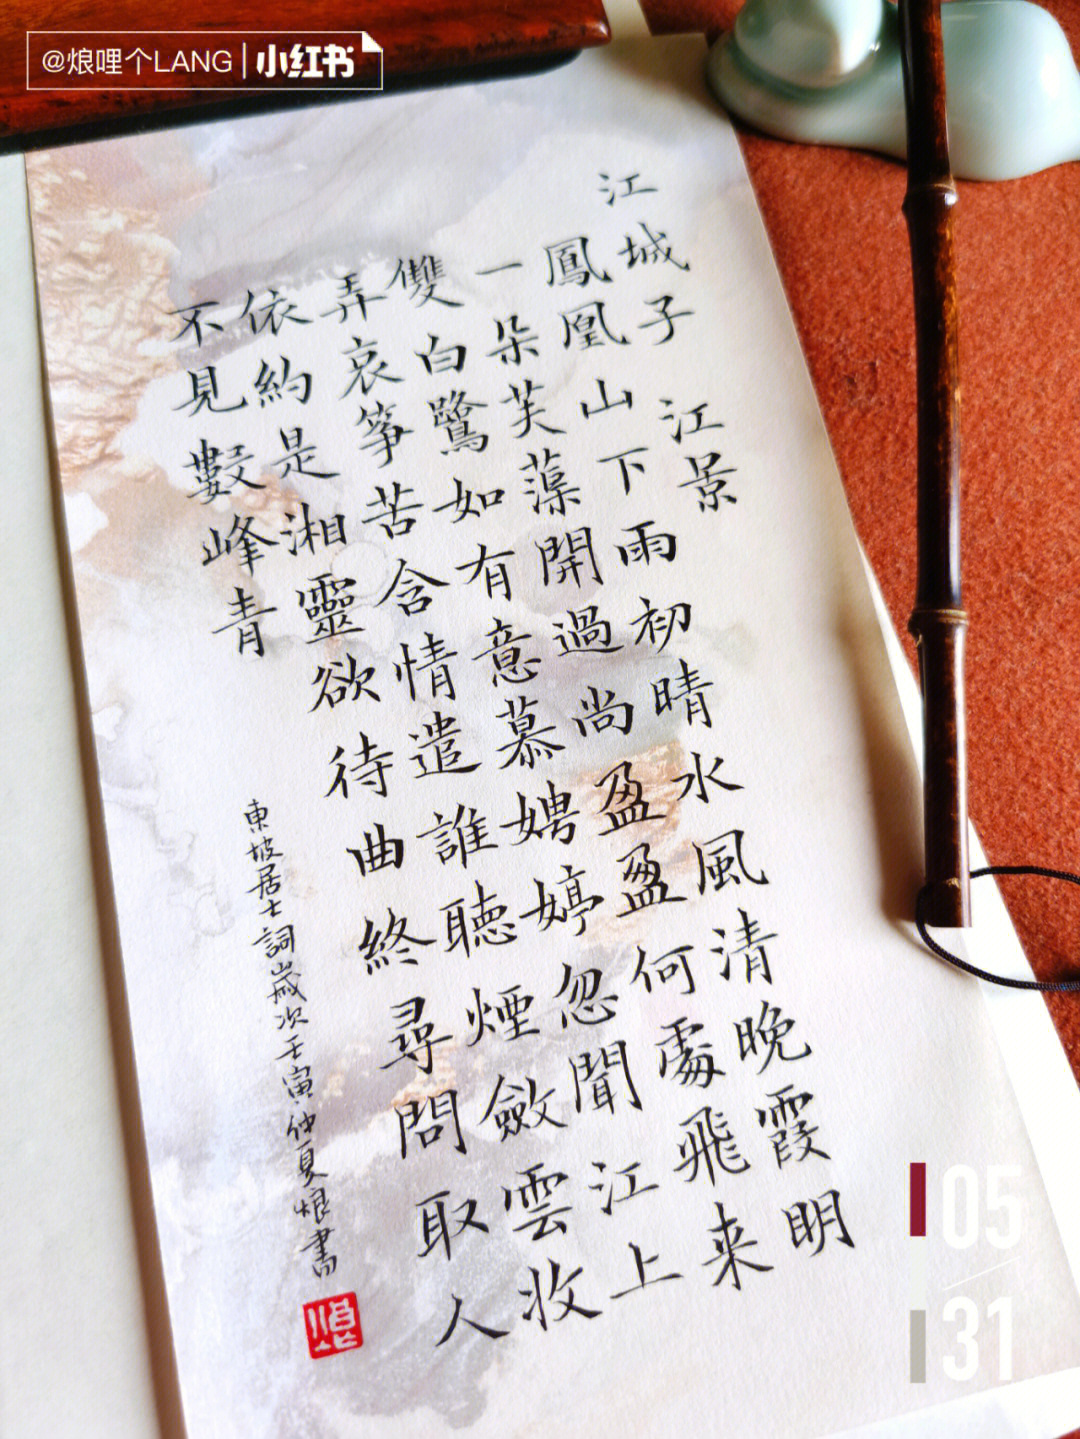 @烺哩个LANG | 小红书
江城子 江景
鳳凰山下雨初晴水風清晚霞明
一朵芙蕖開過尚盈盈何處飛来
雙白鷺如有意慕娉婷忽聞江上
弄哀箏苦含情遣誰聽煙斂雲收
依約是湘靈欲待曲終尋問取人
不見數峰青
東坡居士詞歲次壬寅仲夏烺書
05
31